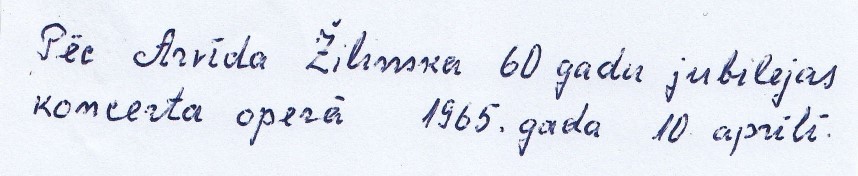 Pēc Arvīda Žilinska 60 gadu jubilejas
koncerta operā 1965. gada 10 aprīlī.